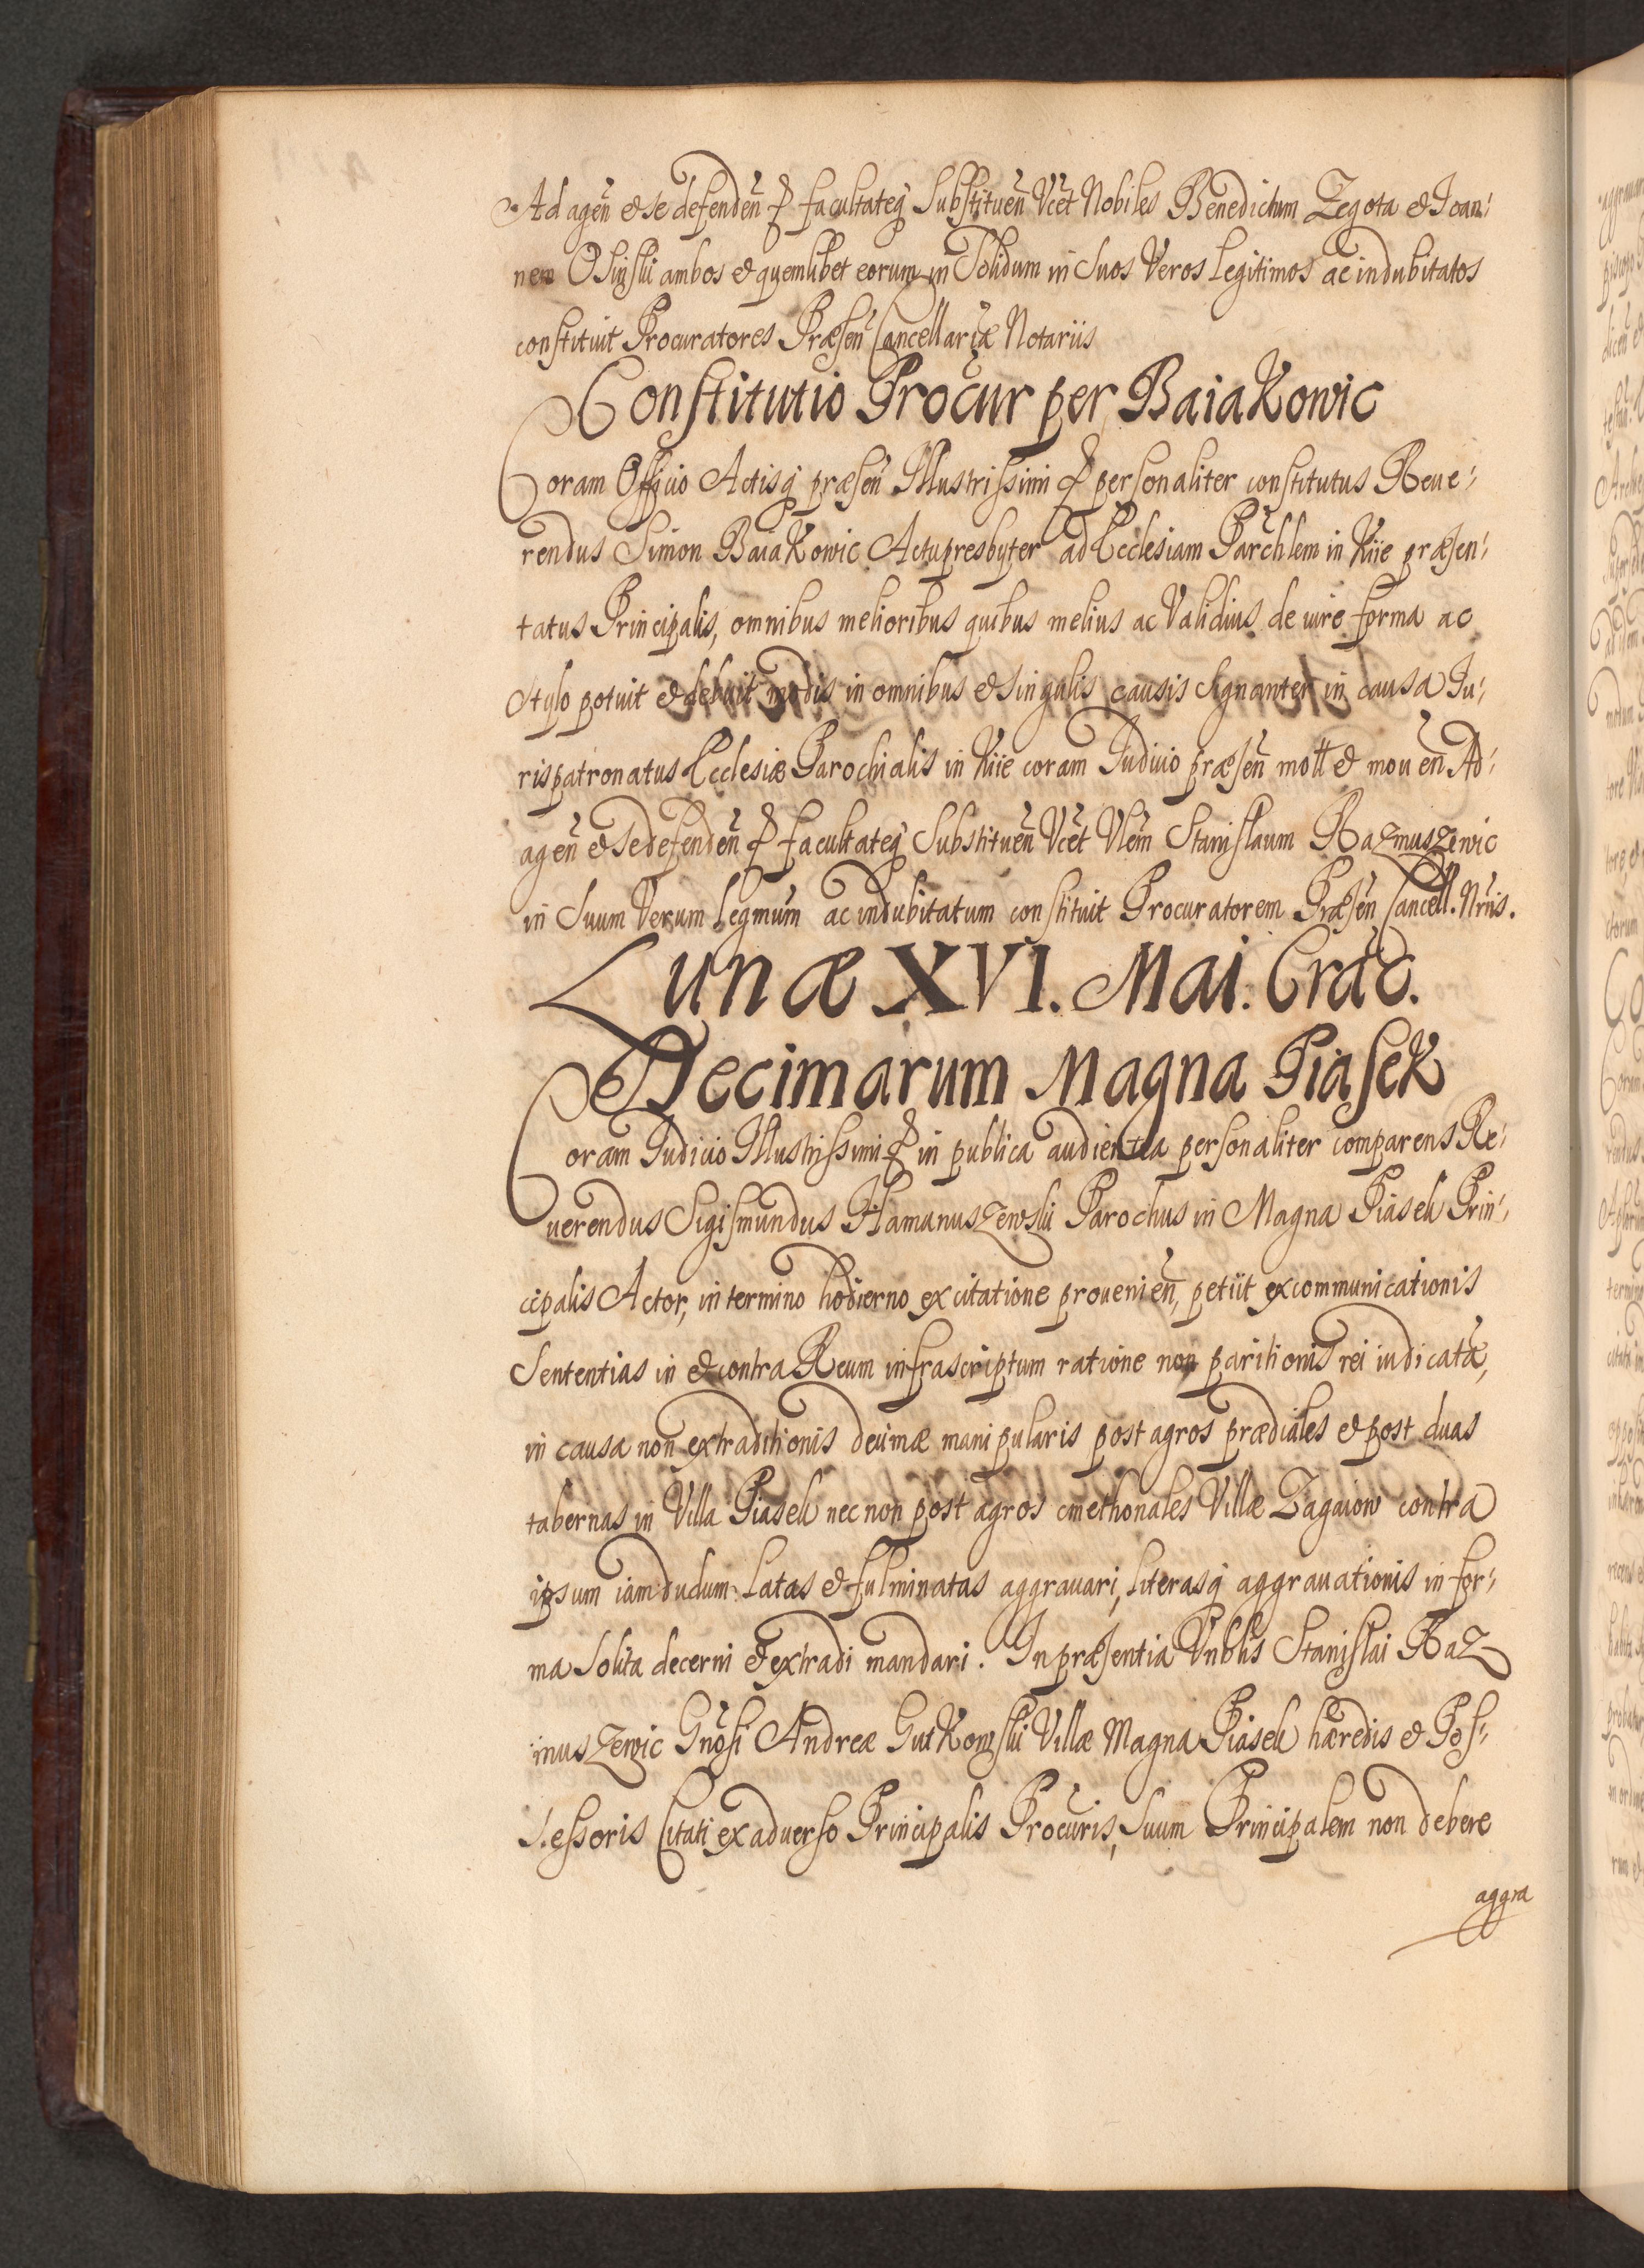 Ad agen̄ & se defenden̄ & facultateq́ Substituen̄ Vcet Nobiles Benedictum Zegota & Ioan-
nem Osinski ambos & quemlibet eorum in Solidum in Suos Veros Legitimos ac indubitatos
constituit Procuratores Præsen̄ Cancellariæ Notariis
Constitutio Procur per BaiaKowic
Coram Officio Actisq́ præsen̄ Illustrissimi & personaliter constitutus Reue-
rendus Simon BaiaKowic Actupresbyter ad Ecclesiam Parchlem in Kiie præsen-
tatus Principalis, omnibus melioribus quibus melius ac Validius de iure forma ac
Stylo potuit & debuit modis in omnibus & singulis causis signanter in causa Iu-
rispatronatus Ecclesiæ Parochialis in Kiie coram Iudicio præsen̄ mott & mouen̄ Ad-
agen̄ & se defenden̄ & facultateq́ Substituen̄ Vcet Vlem Stanislaum Razmuszewic
in Suum Verum Legmum ac indubitatum constituit Procuratorem Præsen̄ Cancell. Nriis.
Lunæ XVI. Mai. Crac.
Decimarum Magna PiaseK
Coram Iudicio Illustrissimi & in publica audientia personaliter comparens Re-
uerendus Sigismundus Hamanuszewski Parochus in Magna Piasek Prin-
cipalis Actor, in termino hodierno ex citatione prouenien̄, petiit excommunicationis
Sententias in & contra Reum infrascriptum ratione non paritionis rei iudicatæ,
in causa non extraditionis decimæ manipularis post agros prædiales & post duas
tabernas in Villa Piasek nec non post agros cmethonales Villæ Zagaiow contra
ipsum iamdudum latas & fulminatas aggrauari, literasq́ aggrauationis in for-
ma Solita decerni & extradi mandari. In præsentia Vnblis Stanislai Raz
muszewic Gnosi Andreæ GutKowski Villæ Magna Piasek hæredis & Pos-
Sessoris Citati ex aduerso Principalis Procuris, Suum Principalem non debere
aggra